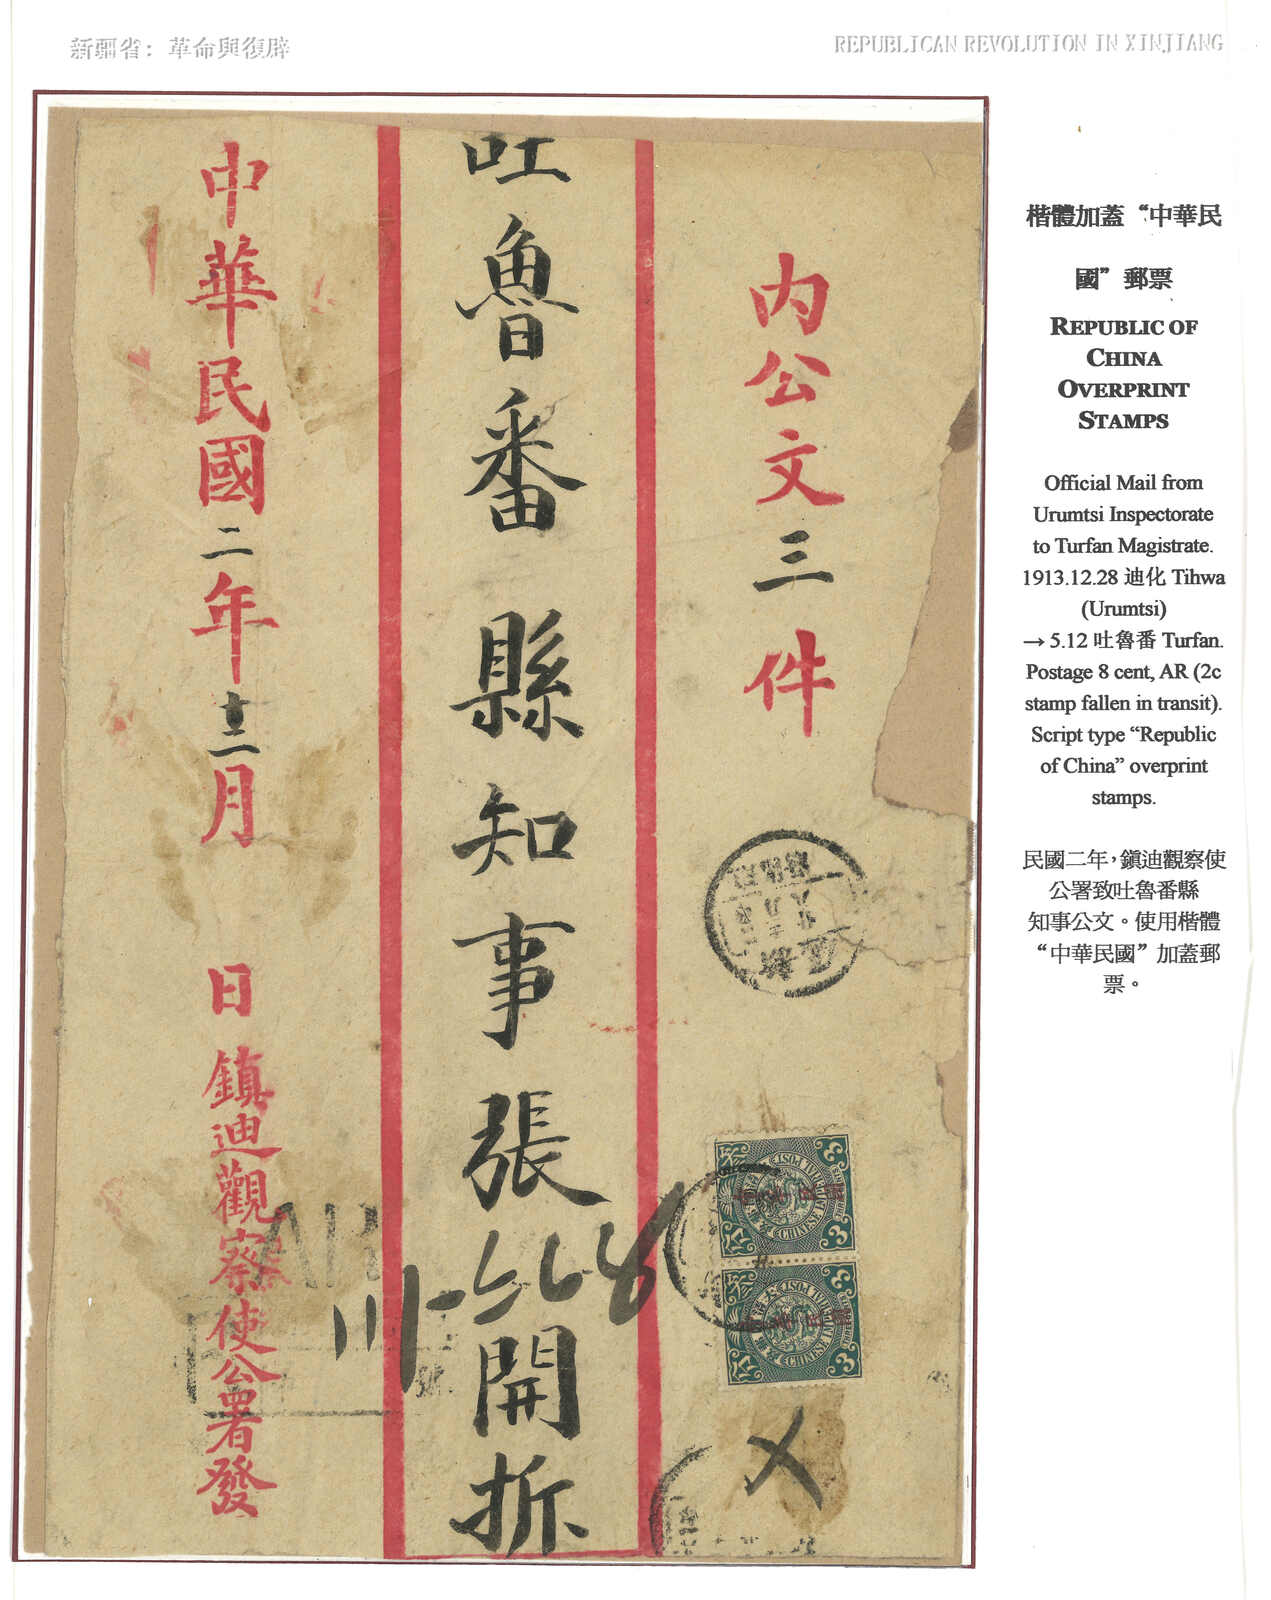 新疆省：革命與復辟
REPUBLICAN REVOLUTION IN XINJIANG
內公文三件
吐魯番縣知事張 開拆
中華民國二年十二月 日鎮迪觀察使公署發
AR
川-
X
CHINESE IMPERIAL POST
3
3
CHINESE IMPERIAL POST
3
3
楷體加蓋“中華民
國”郵票
REPUBLIC OF
CHINA
OVERPRINT
STAMPS
Official Mail from
Urumtsi Inspectorate
to Turfan Magistrate.
1913.12.28 迪化 Tihwa
(Urumtsi)
→ 5.12 吐魯番 Turfan.
Postage 8 cent, AR (2c
stamp fallen in transit).
Script type “Republic
of China” overprint
stamps.
民國二年，鎮迪觀察使
公署致吐魯番縣
知事公文。使用楷體
“中華民國”加蓋郵
票。